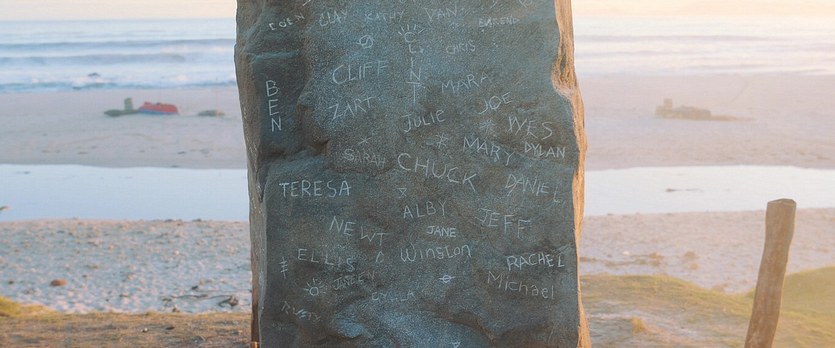 EDEN CLAY KATHY VAN
CLINT
CHRIS
CLIFF MARK
BEN
ZART JOE
JULIE WYES
MARY DYLAN
SARAH CHUCK
TERESA DANIEL
ALBY JEFF
NEWT JANE
ELLIS Winston RACHEL
Michael
RUSTY